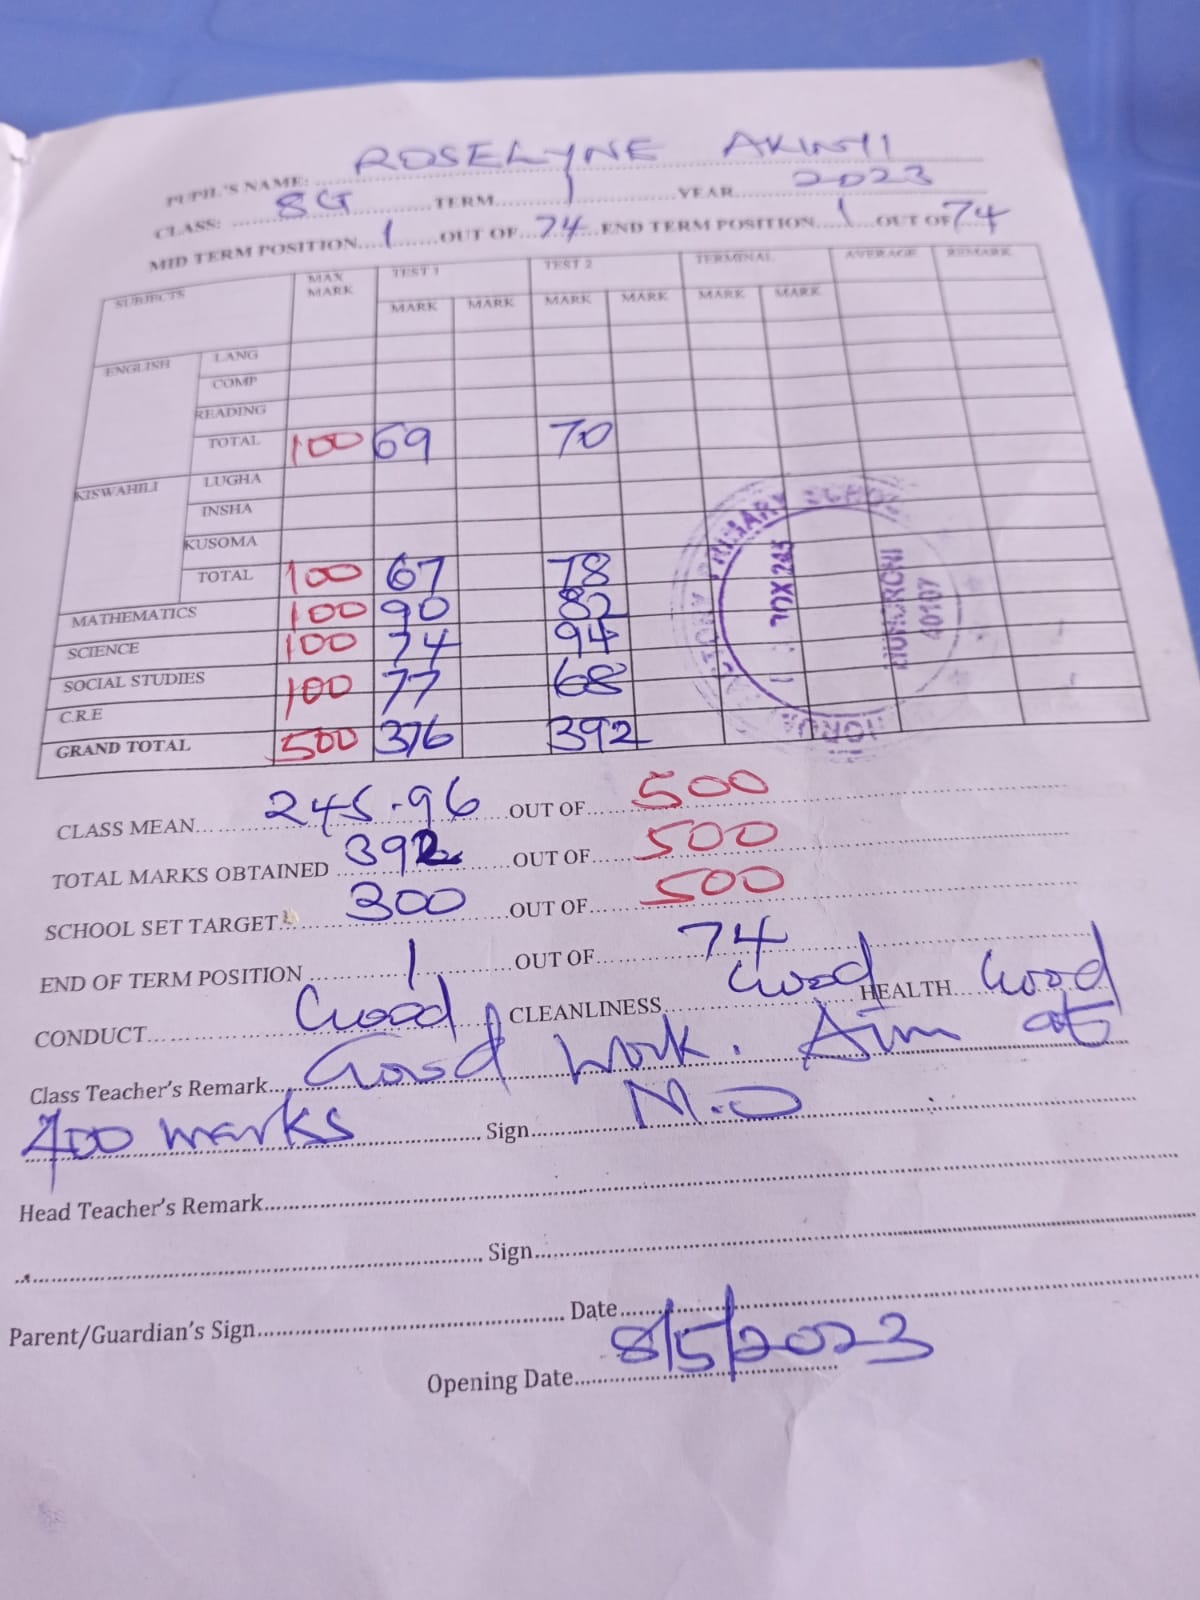 PUPIL'S NAME: ROSELYNE AKINYI
CLASS: 8G TERM 1 YEAR 2023
MID TERM POSITION 1 OUT OF 74 END TERM POSITION 1 OUT OF 74
SUBJECTS MAX MARK TEST 1 TEST 2 TERMINAL AVERAGE REMARK
MARK MARK MARK MARK MARK MARK
ENGLISH LANG
COMP
READING
TOTAL 100 69 70
KISWAHILI LUGHA
INSHA
KUSOMA
TOTAL 100 67 78
MATHEMATICS 100 90 82
SCIENCE 100 74 94
SOCIAL STUDIES 100 77 68
C.R.E
GRAND TOTAL 500 376 392
PRIMARY SCHOOL
BOX 245
40107
CLASS MEAN 245.96 OUT OF 500
TOTAL MARKS OBTAINED 392 OUT OF 500
SCHOOL SET TARGET 300 OUT OF 500
END OF TERM POSITION 1 OUT OF 74
CONDUCT Good CLEANLINESS Good HEALTH Good
Class Teacher's Remark Good work. Aim at
400 marks Sign M.O
Head Teacher's Remark
Sign
Parent/Guardian's Sign Date
Opening Date 8/5/2023